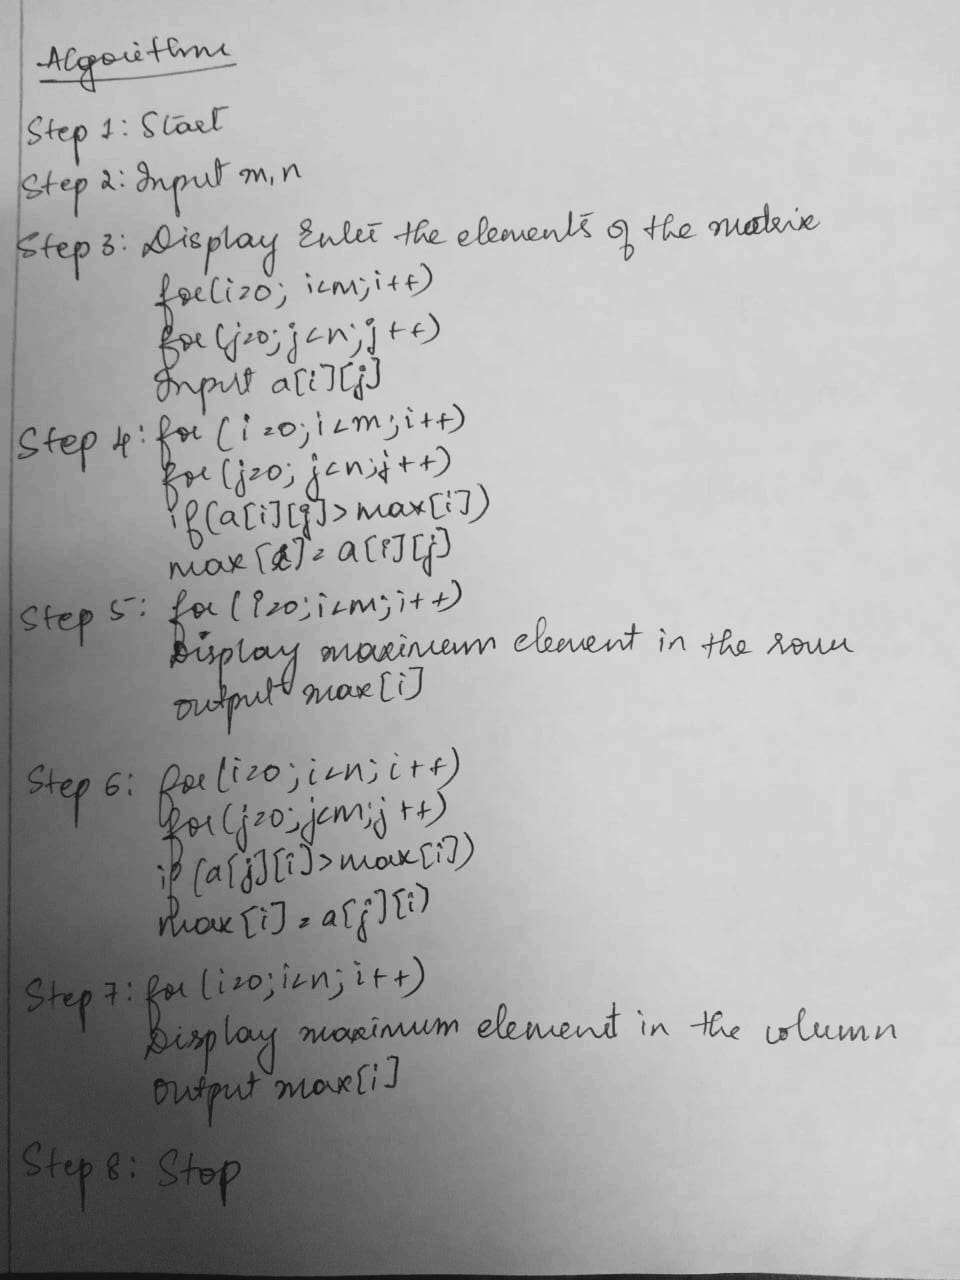 Algorithm
Step 1: Start
Step 2: Input m, n
Step 3: Display Enter the elements of the matrix
for(i=0; i<m; i++)
for (j=0; j<n; j++)
Input a[i][j]
Step 4: for (i=0; i<m; i++)
for (j=0; j<n; j++)
if (a[i][j]>max[i])
max[i] = a[i][j]
Step 5: for (i=0; i<m; i++)
Display maximum element in the row
output max[i]
Step 6: for(i=0; i<n; i++)
for(j=0; j<m; j++)
if (a[j][i]>max[i])
max[i] = a[j][i]
Step 7: for (i=0; i<n; i++)
Display maximum element in the column
output max[i]
Step 8: Stop